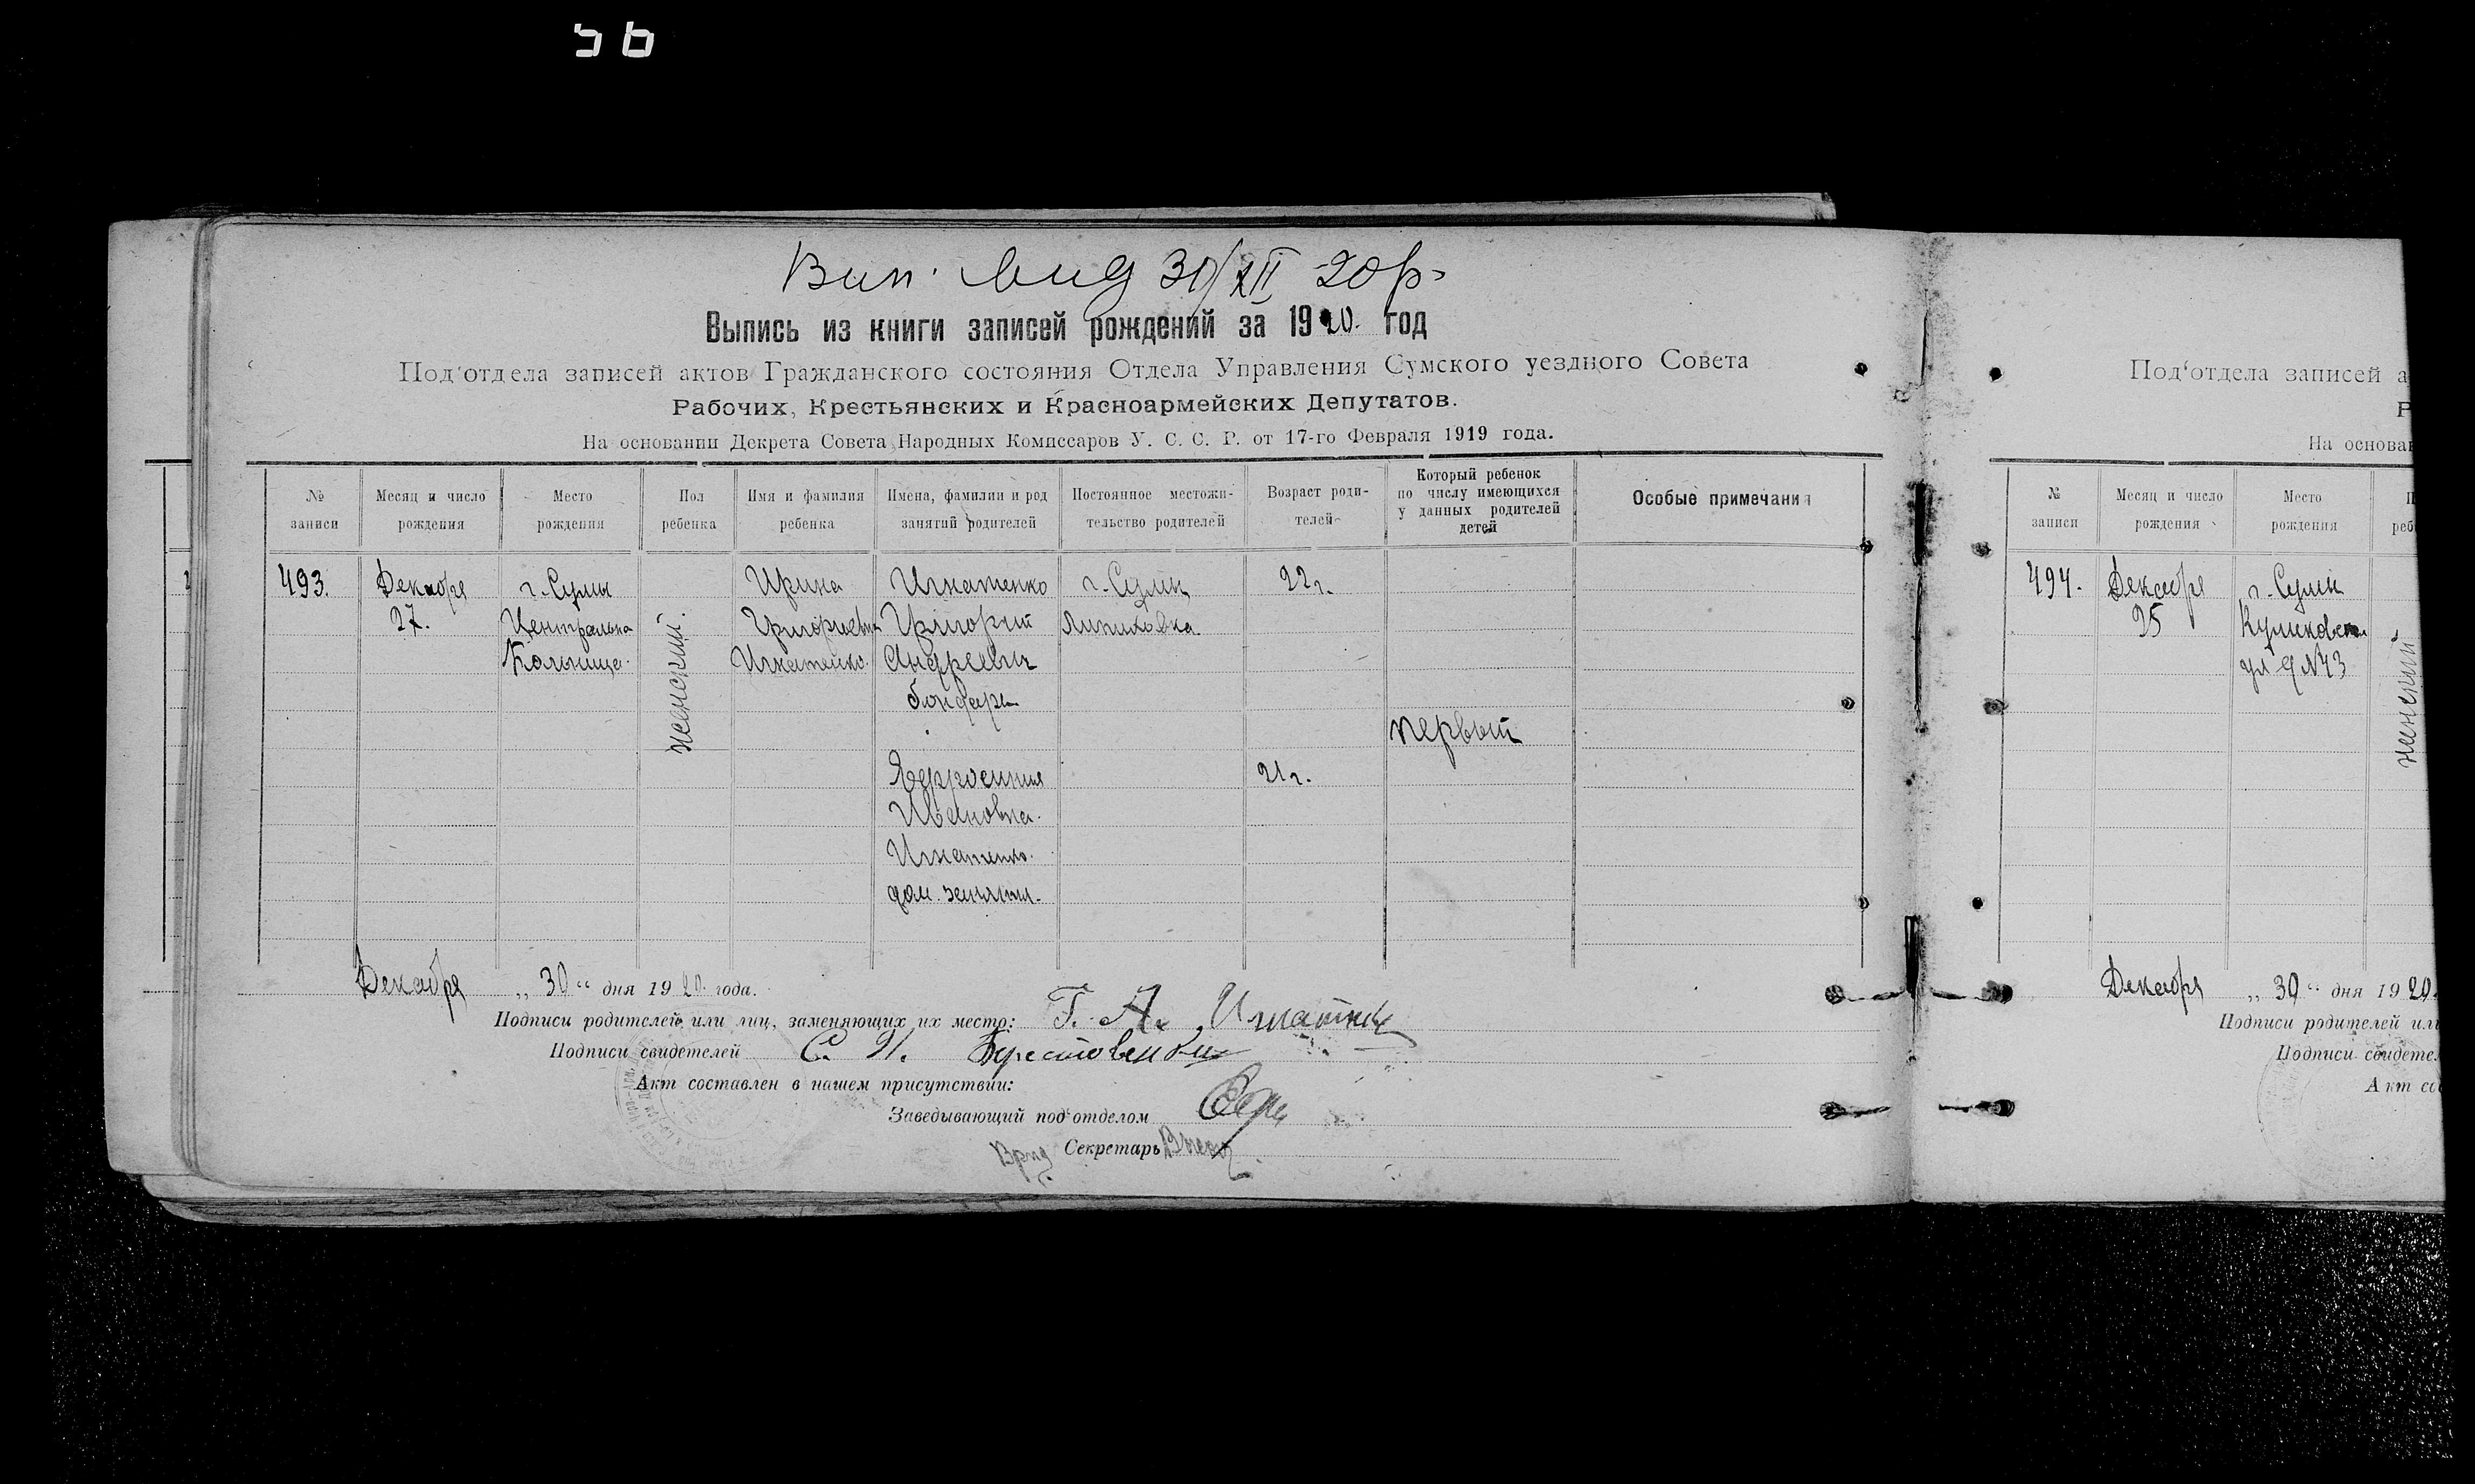 Вип. вид 30/XII 20 р.
Выпись из книги записей рождений за 1920. год
Под'отдела записей актов Гражданского состояния Отдела Управления Сумского уездного Совета
Рабочих, Крестьянских и Красноармейских Депутатов.
На основании Декрета Совета Народных Комиссаров У. С. С. Р. от 17-го Февраля 1919 года.
№ записи
Месяц и число рождения
Место рождения
Пол ребенка
Имя и фамилия ребенка
Имена, фамилии и род занятий родителей
Постоянное местожительство родителей
Возраст родителей
Который ребенок по числу имеющихся у данных родителей детей
Особые примечания
493.
Декабря
27.
г. Сумы
Центральна
Больница.
женский.
Ирина
Григорьевна
Игнатенко.
Игнатенко
Григорий
Андреевич
бондарь
Ивановна.
Игнатенко.
дом. занятия.
г. Сумы
22 г.
21 г.
первый
Декабря „30“ дня 1920. года.
Подписи родителей или лиц, заменяющих их место: Г. А. Игнатенк
Подписи свидетелей С. И.
Акт составлен в нашем присутствии:
Заведывающий под'отделом
Врид Секретарь
Под'отдела записей а
Р
На основан
№ записи
Месяц и число рождения
Место рождения
П
реб
494.
Декабря
25
г. Сумы
Куликовск
ул д N43
женский
Декабря „30“ дня 1920.
Подписи родителей или
Подписи свидетел
Акт со